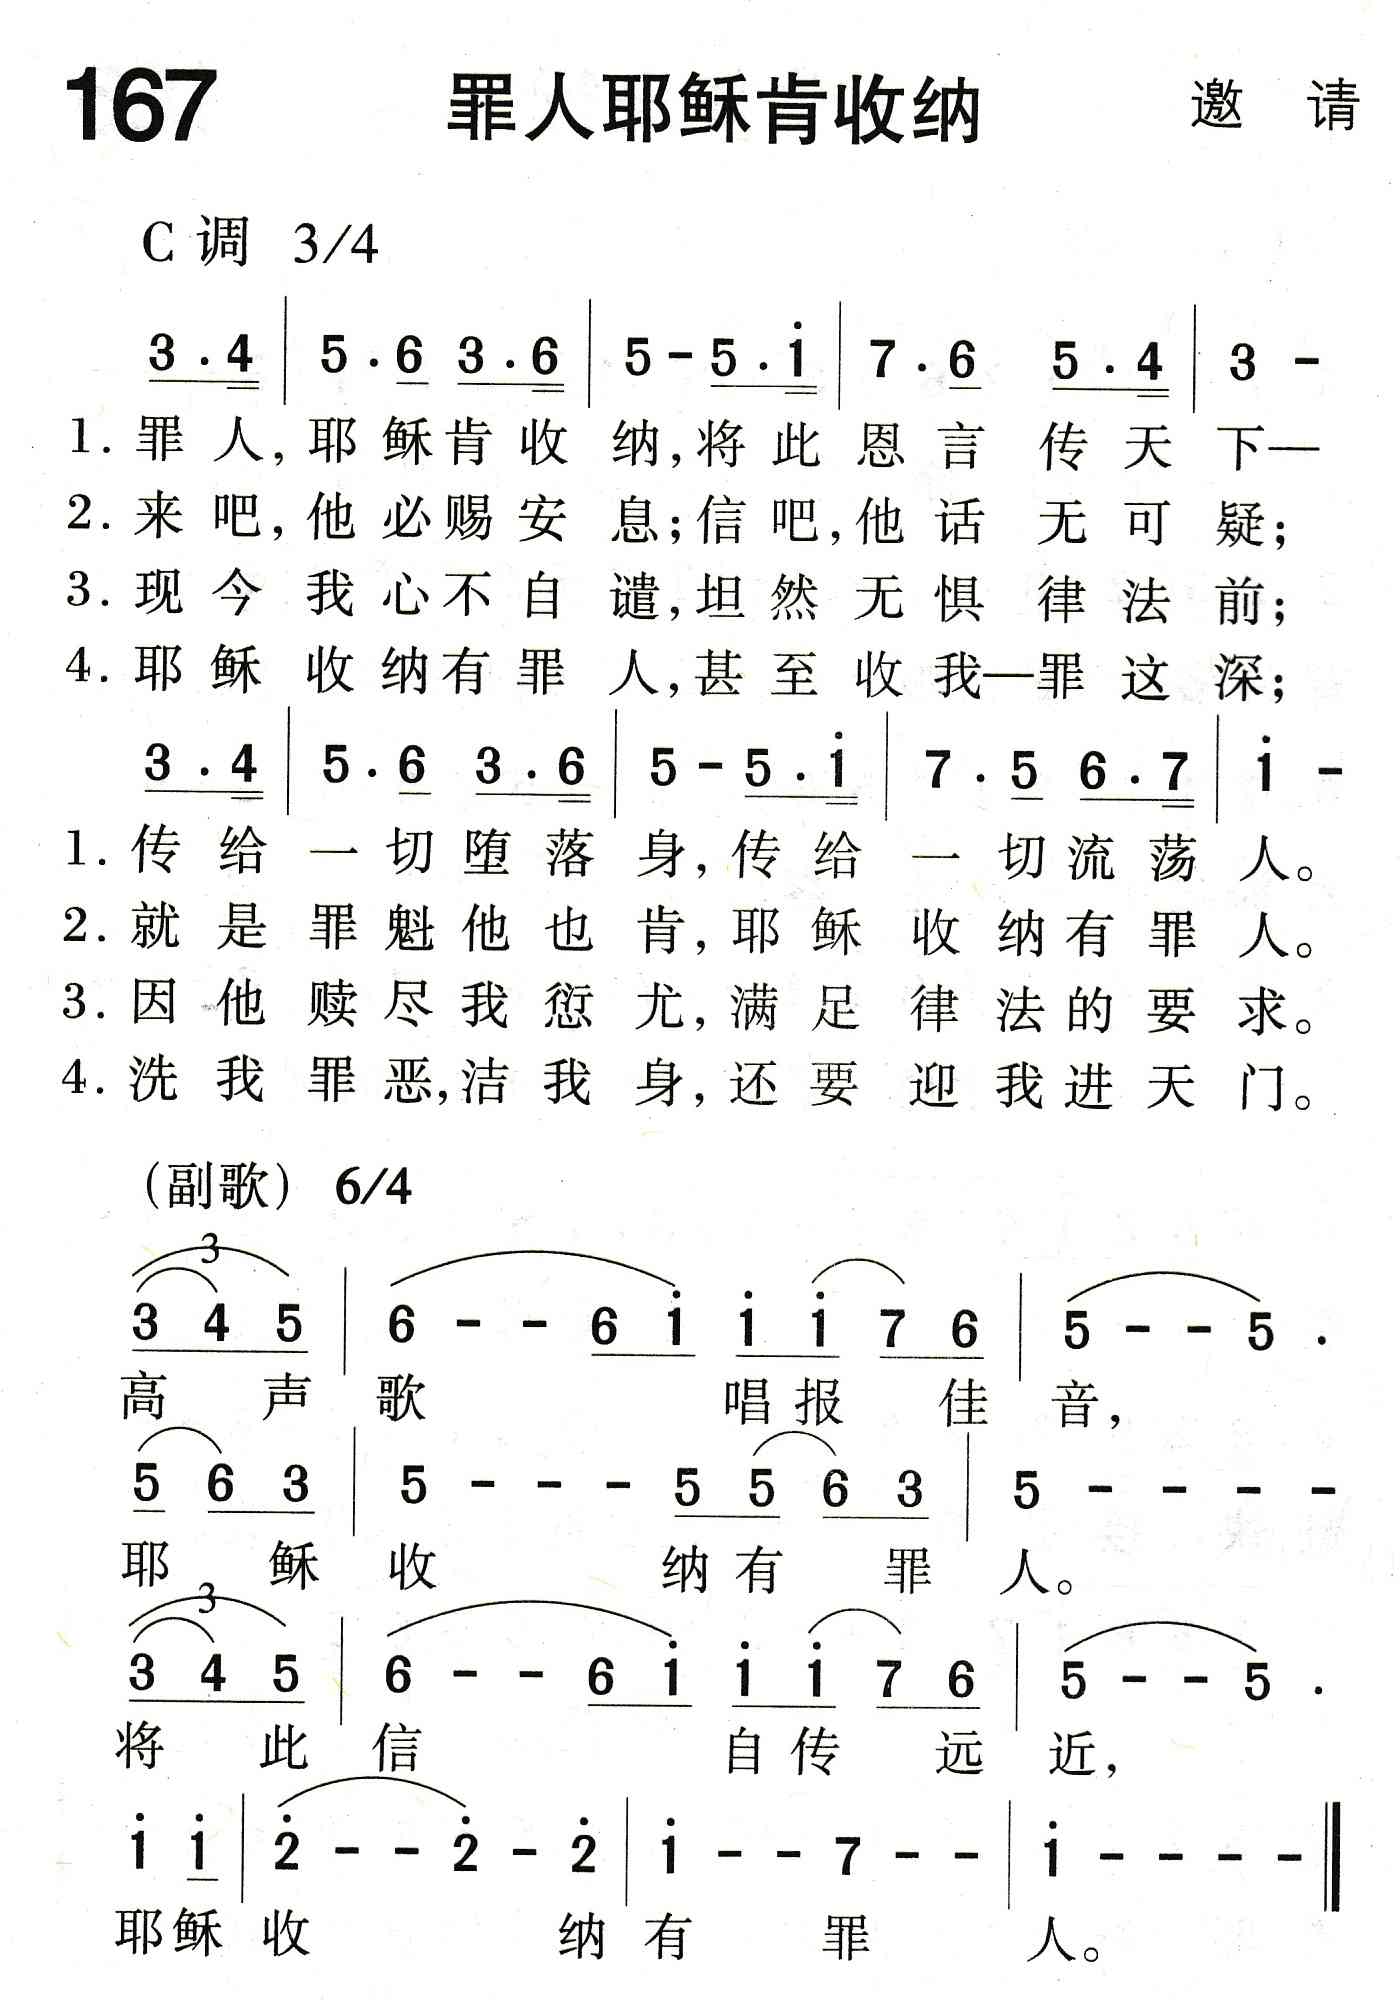 167 罪人耶稣肯收纳 邀 请
C 调 3/4
3 . 4 | 5 . 6 3 . 6 | 5 - 5 . i | 7 . 6 5 . 4 | 3 -
1. 罪人,耶稣肯收纳,将此恩言传天下—
2. 来吧,他必赐安息;信吧,他话无可疑;
3. 现今我心不自谴,坦然无惧律法前;
4. 耶稣收纳有罪人,甚至收我—罪这深;
3 . 4 | 5 . 6 3 . 6 | 5 - 5 . i | 7 . 5 6 . 7 | i -
1. 传给一切堕落身,传给一切流荡人。
2. 就是罪魁他也肯,耶稣收纳有罪人。
3. 因他赎尽我愆尤,满足律法的要求。
4. 洗我罪恶,洁我身,还要迎我进天门。
(副歌) 6/4
3
3 4 5 | 6 - - 6 i i i 7 6 | 5 - - 5 .
高 声 歌 唱报 佳 音,
5 6 3 | 5 - - - 5 5 6 3 | 5 - - - -
耶 稣 收 纳有 罪 人。
3
3 4 5 | 6 - - 6 i i i 7 6 | 5 - - 5 .
将 此 信 自传 远 近,
i i | 2 - - 2 - 2 | i - - 7 - - | i - - - - ‖
耶稣 收 纳 有 罪 人。